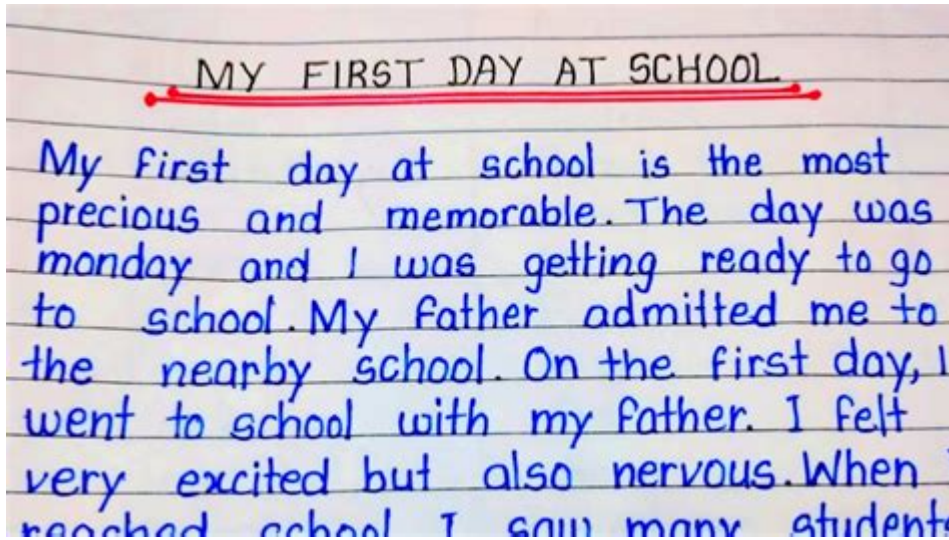 MY FIRST DAY AT SCHOOL
My first day at school is the most
precious and memorable. The day was
monday and I was getting ready to go
to school. My father admitted me to
the nearby school. On the first day, I
went to school with my father. I felt
very excited but also nervous. When
reached school I saw many students